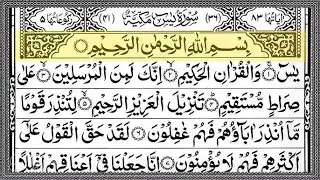 اٰیاتها ٨٣ (٣٦) سُوْرَةُ یٰسٓ مَكِّیَّةٌ (٤١) رکوعاتها ٥
بِسْمِ اللهِ الرَّحْمٰنِ الرَّحِیْمِ
یٰسٓ ۚ۝١ وَالْقُرْاٰنِ الْحَكِیْمِ ۙ۝٢ اِنَّكَ لَمِنَ الْمُرْسَلِیْنَ ۙ۝٣ عَلٰی
صِرَاطٍ مُّسْتَقِیْمٍ ؕ۝٤ تَنْزِیْلَ الْعَزِیْزِ الرَّحِیْمِ ۙ۝٥ لِتُنْذِرَ قَوْمًا
مَّاۤ اُنْذِرَ اٰبَآؤُهُمْ فَهُمْ غٰفِلُوْنَ ۝٦ لَقَدْ حَقَّ الْقَوْلُ عَلٰۤی
اَكْثَرِهِمْ فَهُمْ لَا یُؤْمِنُوْنَ ۝٧ اِنَّا جَعَلْنَا فِیْۤ اَعْنَاقِهِمْ اَغْلٰلًا